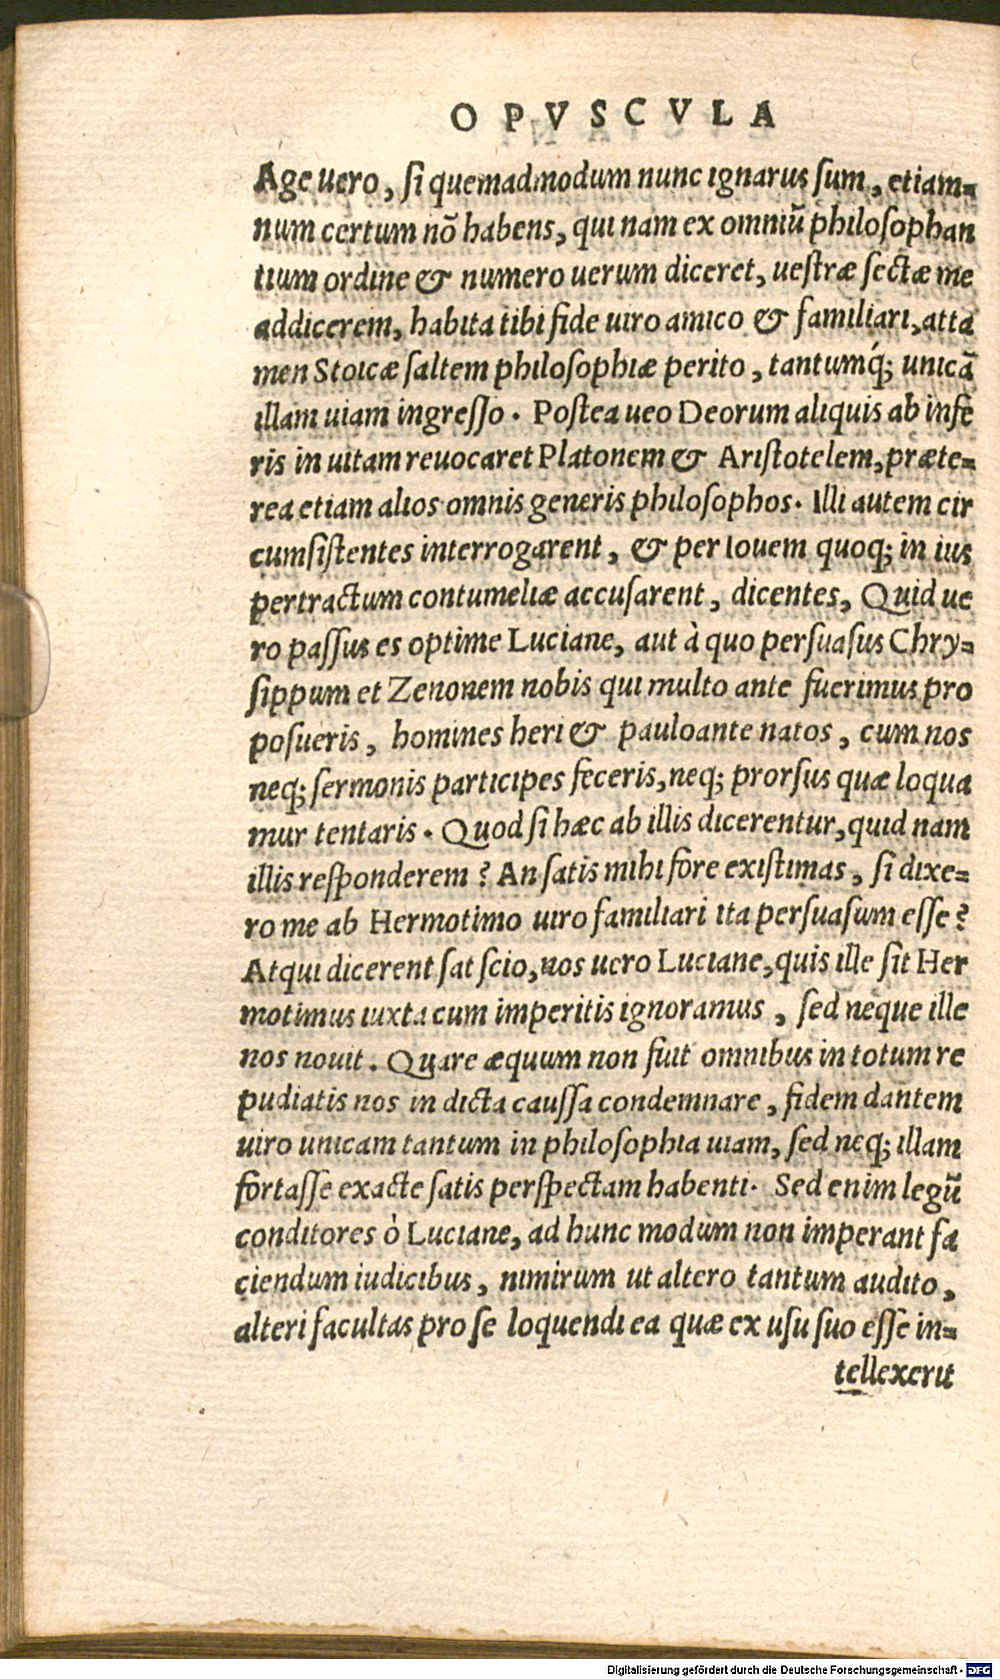 OPVSCVLA
Age uero, si quemadmodum nunc ignarus sum, etiam-
num certum nõ habens, qui nam ex omniũ philosophan
tium ordine & numero uerum diceret, uestræ sectæ me
addicerem, habita tibi fide uiro amico & familiari, atta
men Stoicæ saltem philosophiæ perito, tantumq́; unicã
illam uiam ingresso. Postea ueo Deorum aliquis ab infe
ris in uitam reuocaret Platonem & Aristotelem, præte-
rea etiam alios omnis generis philosophos. Illi autem cir
cumsistentes interrogarent, & per Iouem quoq; in ius
pertractum contumeliæ accusarent, dicentes, Quid ue
ro passus es optime Luciane, aut à quo persuasus Chry-
sippum et Zenonem nobis qui multo ante fuerimus pro
posueris, homines heri & pauloante natos, cum nos
neq; sermonis participes feceris, neq; prorsus quæ loqua
mur tentaris. Quod si hæc ab illis dicerentur, quid nam
illis responderem? An satis mihi fore existimas, si dixe-
ro me ab Hermotimo uiro familiari ita persuasum esse?
Atqui dicerent sat scio, nos uero Luciane, quis ille sit Her
motimus iuxta cum imperitis ignoramus, sed neque ille
nos nouit. Quare æquum non fuit omnibus in totum re
pudiatis nos in dicta caussa condemnare, fidem dantem
uiro unicam tantum in philosophia uiam, sed neq; illam
fortasse exacte satis perspectam habenti. Sed enim legũ
conditores ò Luciane, ad hunc modum non imperant fa
ciendum iudicibus, nimirum ut altero tantum audito,
alteri facultas pro se loquendi ea quæ ex usu suo esse in-
tellexerit
Digitalisierung gefördert durch die Deutsche Forschungsgemeinschaft - DFG